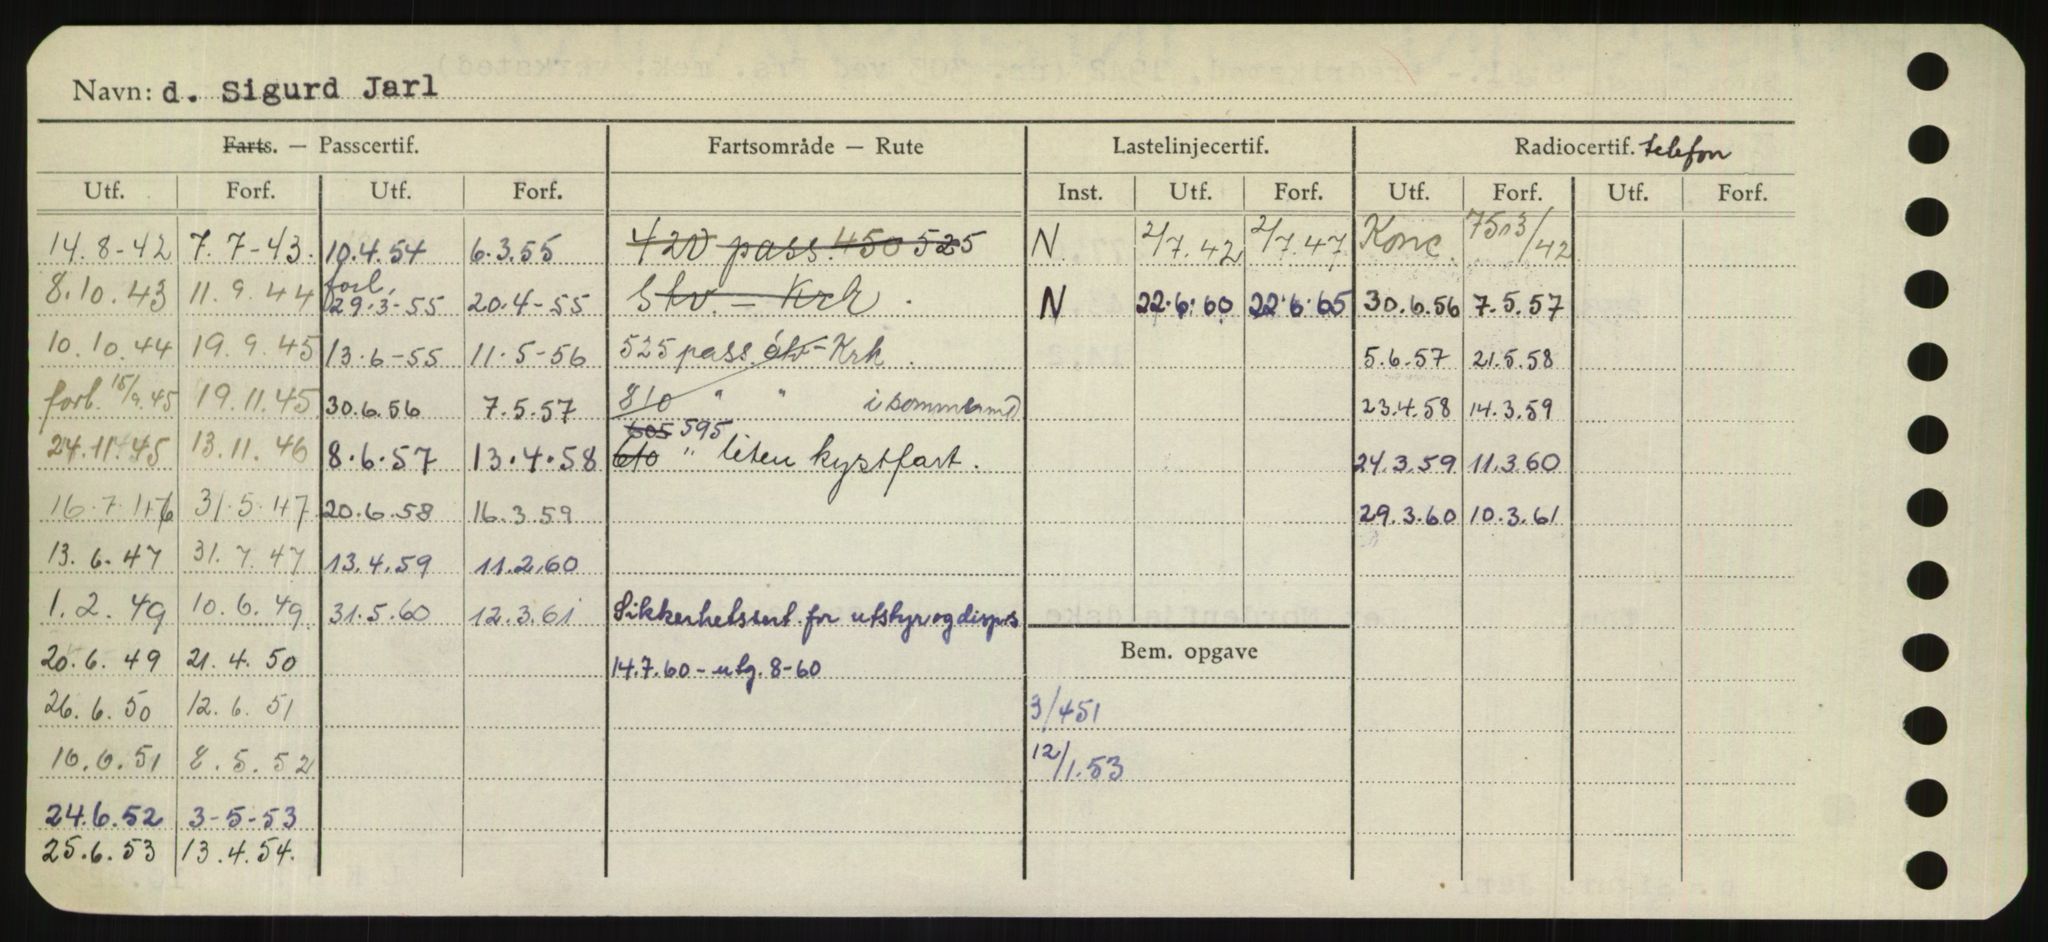 Navn: d. Sigurd Jarl
Farts. — Passcertif. Fartsområde — Rute Lastelinjecertif. Radiocertif. telefon
Utf. Forf. Utf. Forf. Inst. Utf. Forf. Utf. Forf. Utf. Forf.
14.8-42 7.7-43. 10.4.54 6.3.55 420 pass. 450 525 N. 2/7.42 2/7.47 Konc. 7513/42
8.10.43 11.9.44 forl. 29.3-55 20.4-55 Stv. - Krk. N 22.6.60 22.6.65 30.6.56 7.5.57
10.10.44 19.9.45 13.6-55 11.5-56 525 pass. Stv - Krk. 5.6.57 21.5.58
forl. 15/9.45 19.11.45 30.6.56 7.5.57 810 " " i sommermd 23.4.58 14.3.59
605 595
24.11.45 13.11.46 8.6.57 13.4.58 610 " liten kystfart. 24.3.59 11.3.60
16.7.46 31.5.47 20.6.58 16.3.59 29.3.60 10.3.61
13.6.47 31.7.47 13.4.59 11.2.60
1.2.49 10.6.49. 31.5.60 12.3.61 Sikkerhetssert. for utstyr og dispos
20.6.49 21.4.50 14.7.60 - utg. 8-60 Bem. opgave
26.6.50 12.6.51 3/451
16.6.51 8.5.52 12/1.53
24.6.52 3-5-53
25.6.53 13.4.54.